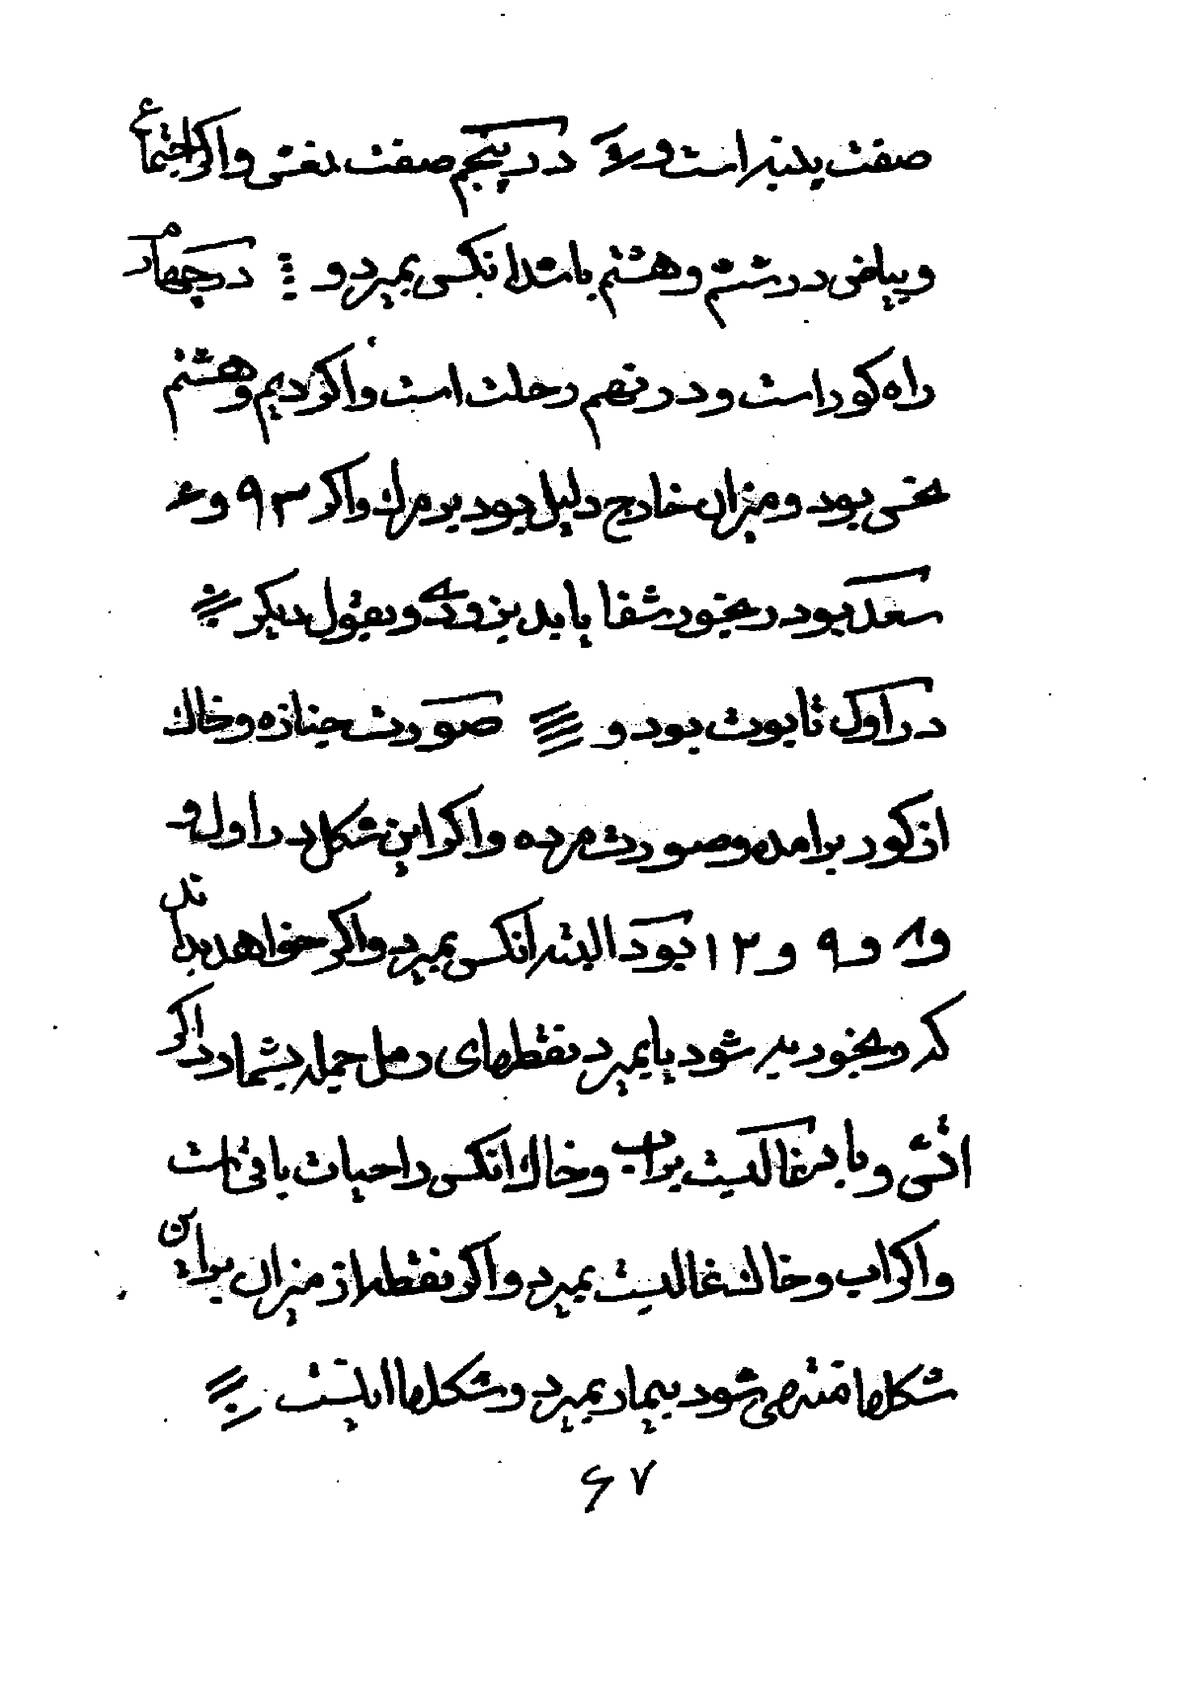 صفت پنبه است و در پنجم صفت نعش و اکر اجتماع
و بیاض در ششم و هشتم باشد انکس بمیرد و در چهارم
راه کور است و در نهم رحلت است و اکر دیم و هشتم
نحس بود و میزان خارج دلیل بود بر مرک و اکر ۳ ۹ و ۶
سعد بود رنجور شفا یابد بزودی و بقول دیکر
در اول تابوت بود و صورت جنازه و خاک
از کور برامده و صورت مرده و اکر این شکل در اول و
و ۸ و ۹ و ۱۳ بود البته انکس بمیرد و اکر خواهد بداند
که رنجور به شود یا بمیرد نقطهای رمل جمله بشمارد اکر
اتشی و بادی غالبست بر اب و خاک انکس را حیات باقیست
و اکر اب و خاک غالبست بمیرد و اکر نقطه از میزان براین
شکلها منتهی شود بیمار بمیرد و شکلها اینست
۶۷